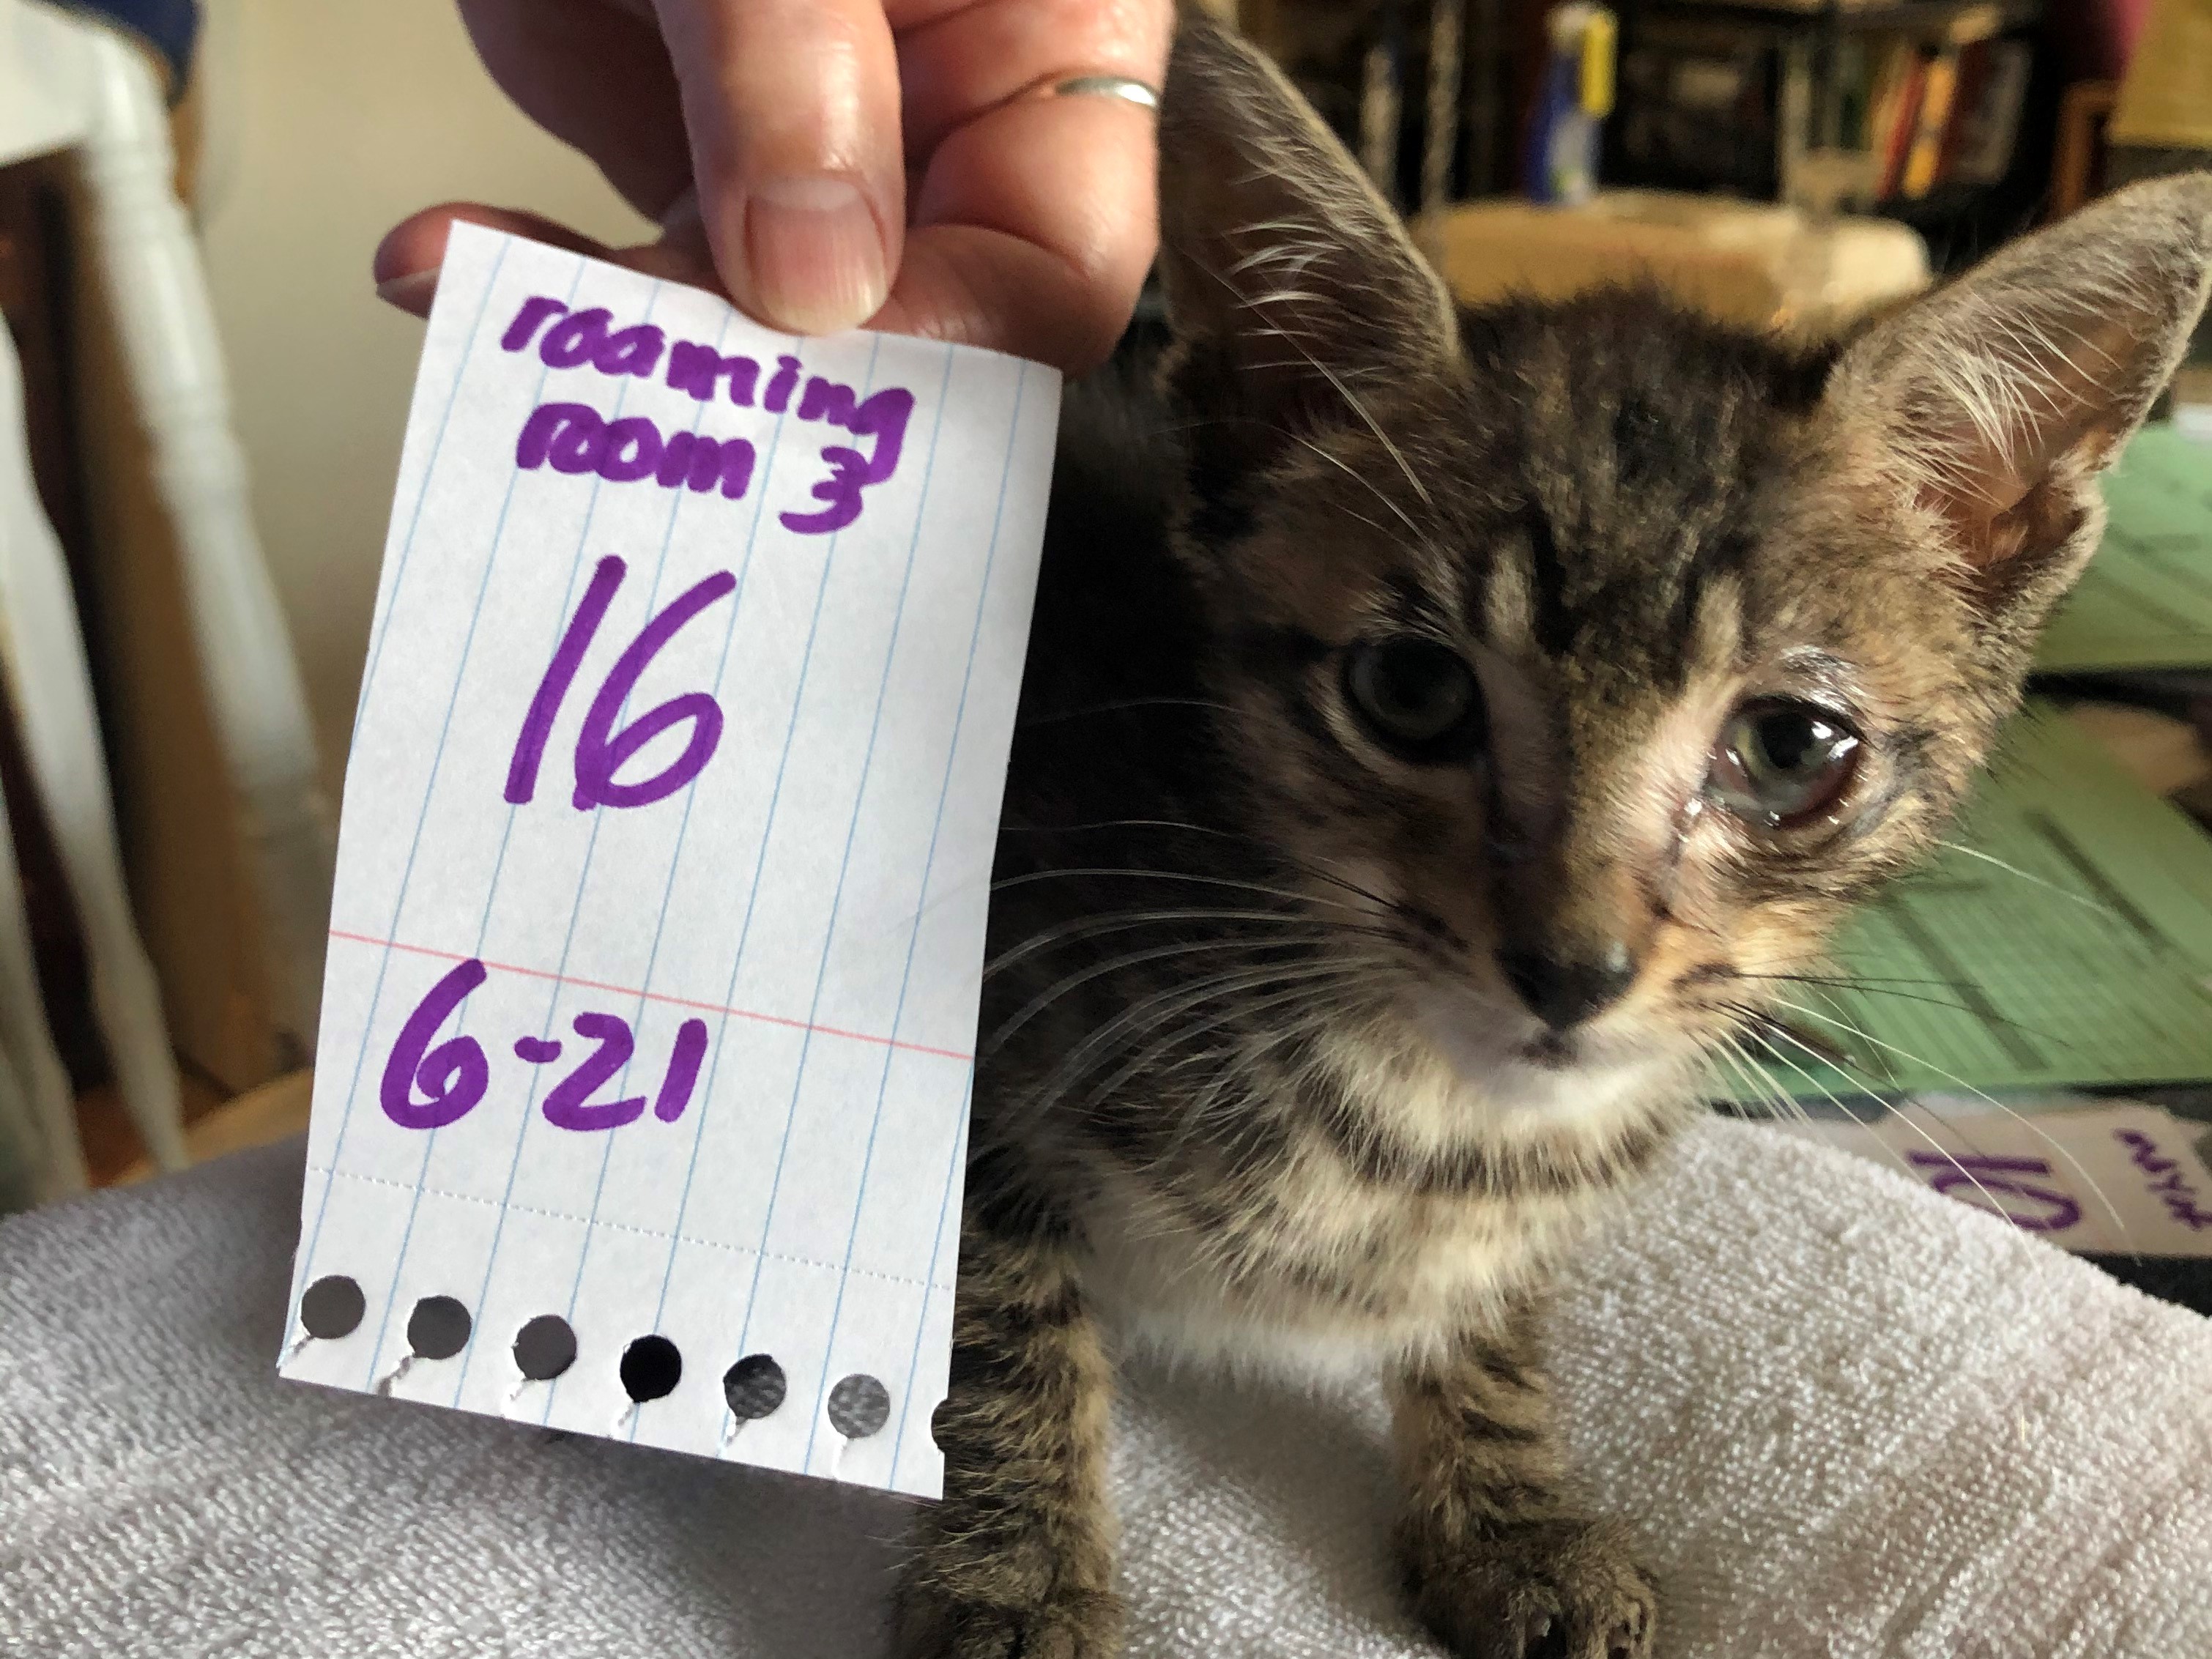 roaming
room 3
16
6-21